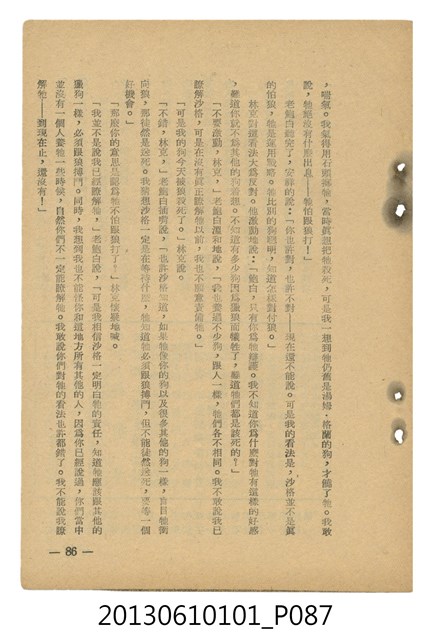 ，喘氣。我氣得用石頭擲牠，當時眞想把牠殺死，可是我一想到牠仍舊是湯姆·格蘭的狗，才饒了牠。我敢
說，牠絕沒有什麼出息——牠怕跟狼打！」
老鮑白聽完了，安靜的說：「你也許對，也許不對——現在還不能說。可是我的看法是，沙格並不是眞
的怕狼，牠是運用戰略。牠比別的狗聰明，知道怎樣對付狼。」
林克對這看法大爲反對。他激動地說：「鮑白，只有你爲牠辯護。我不知道你爲什麼對牠有這樣的好感
，難道你就不爲其他的狗着想。不知道有多少狗因爲獵狼而犧牲了，難道牠們都是該死的？」
「不要激動，林克，」老鮑白溫和地說，「我也養過不少狗，跟人一樣，牠們各不相同。我不敢說我已
瞭解沙格，可是在沒有眞正瞭解牠以前，我也不願意責備牠。」
「可是我的狗今天被狼殺死了。」林克說。
「不錯，林克，」老鮑白插嘴說，「也許沙格知道，如果牠像你的狗以及很多其他的狗一樣，盲目地衝
向狼，那純然是送死。我猜想沙格一定是在等待什麼，牠知道牠必須跟狼搏鬥，但不能徒然送死，要等一個
好機會。」
「那麼你的意思是認爲牠不怕跟狼打了？」林克懷疑地喊。
「我並不是說我已經瞭解牠，」老鮑白說，「可是我相信沙格一定明白牠的責任，知道牠應該跟其他的
獵狗一樣，必須跟狼搏鬥。同時，我想到我也不能怪你和這地方所有其他的人，因爲你已經說過，你們當中
並沒有一個人養牠一些時候，自然你們不一定能瞭解牠。我敢說你們對牠的看法也許都錯了。我不能說我瞭
解牠——到現在止，還沒有！」
— 86 —
20130610101_P087